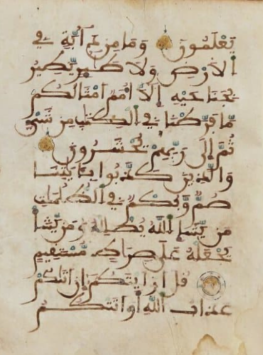 يعلمون وما من دابة في
الارض ولا طير يطير
بجناحيه الا امم امثالكم
ما فرطنا في الكتب من شيء
ثم الى ربهم يحشرون
والذين كذبوا بايتنا
صم وبكم في الظلمت
من يشا الله يضلله ومن يشا
يجعله على صرط مستقيم
قل ارايتكم ان اتيكم
عذاب الله او اتتكم